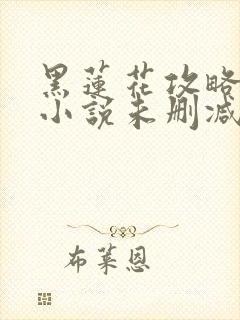 黑蓮花攻略
小說未刪減
布萊恩